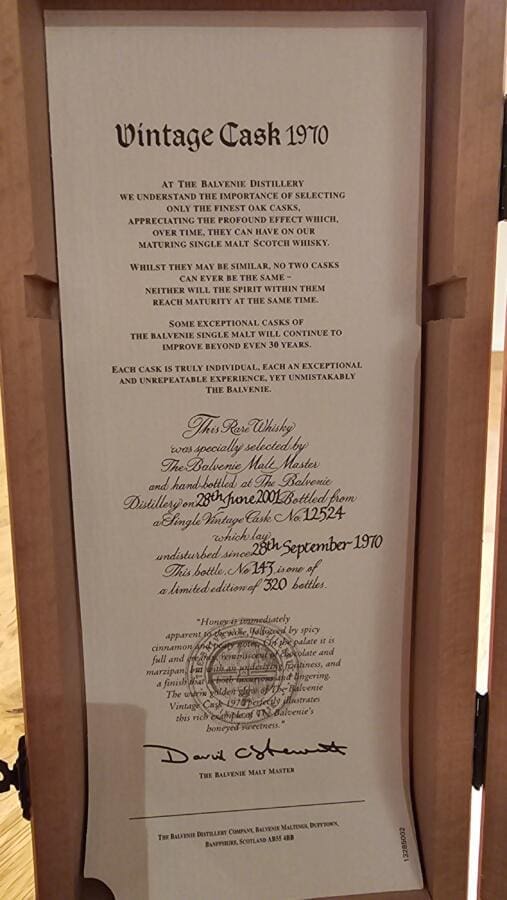 Vintage Cask 1970
AT THE BALVENIE DISTILLERY
WE UNDERSTAND THE IMPORTANCE OF SELECTING
ONLY THE FINEST OAK CASKS,
APPRECIATING THE PROFOUND EFFECT WHICH,
OVER TIME, THEY CAN HAVE ON OUR
MATURING SINGLE MALT SCOTCH WHISKY.
WHILST THEY MAY BE SIMILAR, NO TWO CASKS
CAN EVER BE THE SAME –
NEITHER WILL THE SPIRIT WITHIN THEM
REACH MATURITY AT THE SAME TIME.
SOME EXCEPTIONAL CASKS OF
THE BALVENIE SINGLE MALT WILL CONTINUE TO
IMPROVE BEYOND EVEN 30 YEARS.
EACH CASK IS TRULY INDIVIDUAL, EACH AN EXCEPTIONAL
AND UNREPEATABLE EXPERIENCE, YET UNMISTAKABLY
THE BALVENIE.
This Rare Whisky
was specially selected by
The Balvenie Malt Master
and hand-bottled at The Balvenie
Distillery on 28th June 2001 Bottled from
a Single Vintage Cask No. 12524
which lay
undisturbed since 28th September 1970
This bottle, No 143 is one of
a limited edition of 320 bottles.
"Honey is immediately
apparent to the nose, followed by spicy
cinnamon and peaty notes. On the palate it is
full and creamy, reminiscent of chocolate and
marzipan, but with an underlying fruitiness, and
a finish that is both luxurious and lingering.
The warm golden glow of The Balvenie
Vintage Cask 1970 perfectly illustrates
this rich example of The Balvenie's
honeyed sweetness."
David C Stewart
THE BALVENIE MALT MASTER
THE BALVENIE DISTILLERY COMPANY, BALVENIE MALTINGS, DUFFTOWN,
BANFFSHIRE, SCOTLAND AB55 4BB
13285002